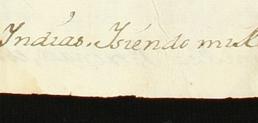 Indias. Isiéndo mui